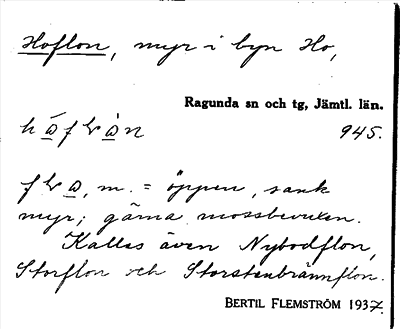 Hoflon, myr i byn Ho,
Ragunda sn och tg, Jämtl. län.
945.
m. = öppen, sank
myr; gärna mossbevuxen.
Kallas även Nybodflon,
Storflon och Storstenbrännflon.
BERTIL FLEMSTRÖM 1937.